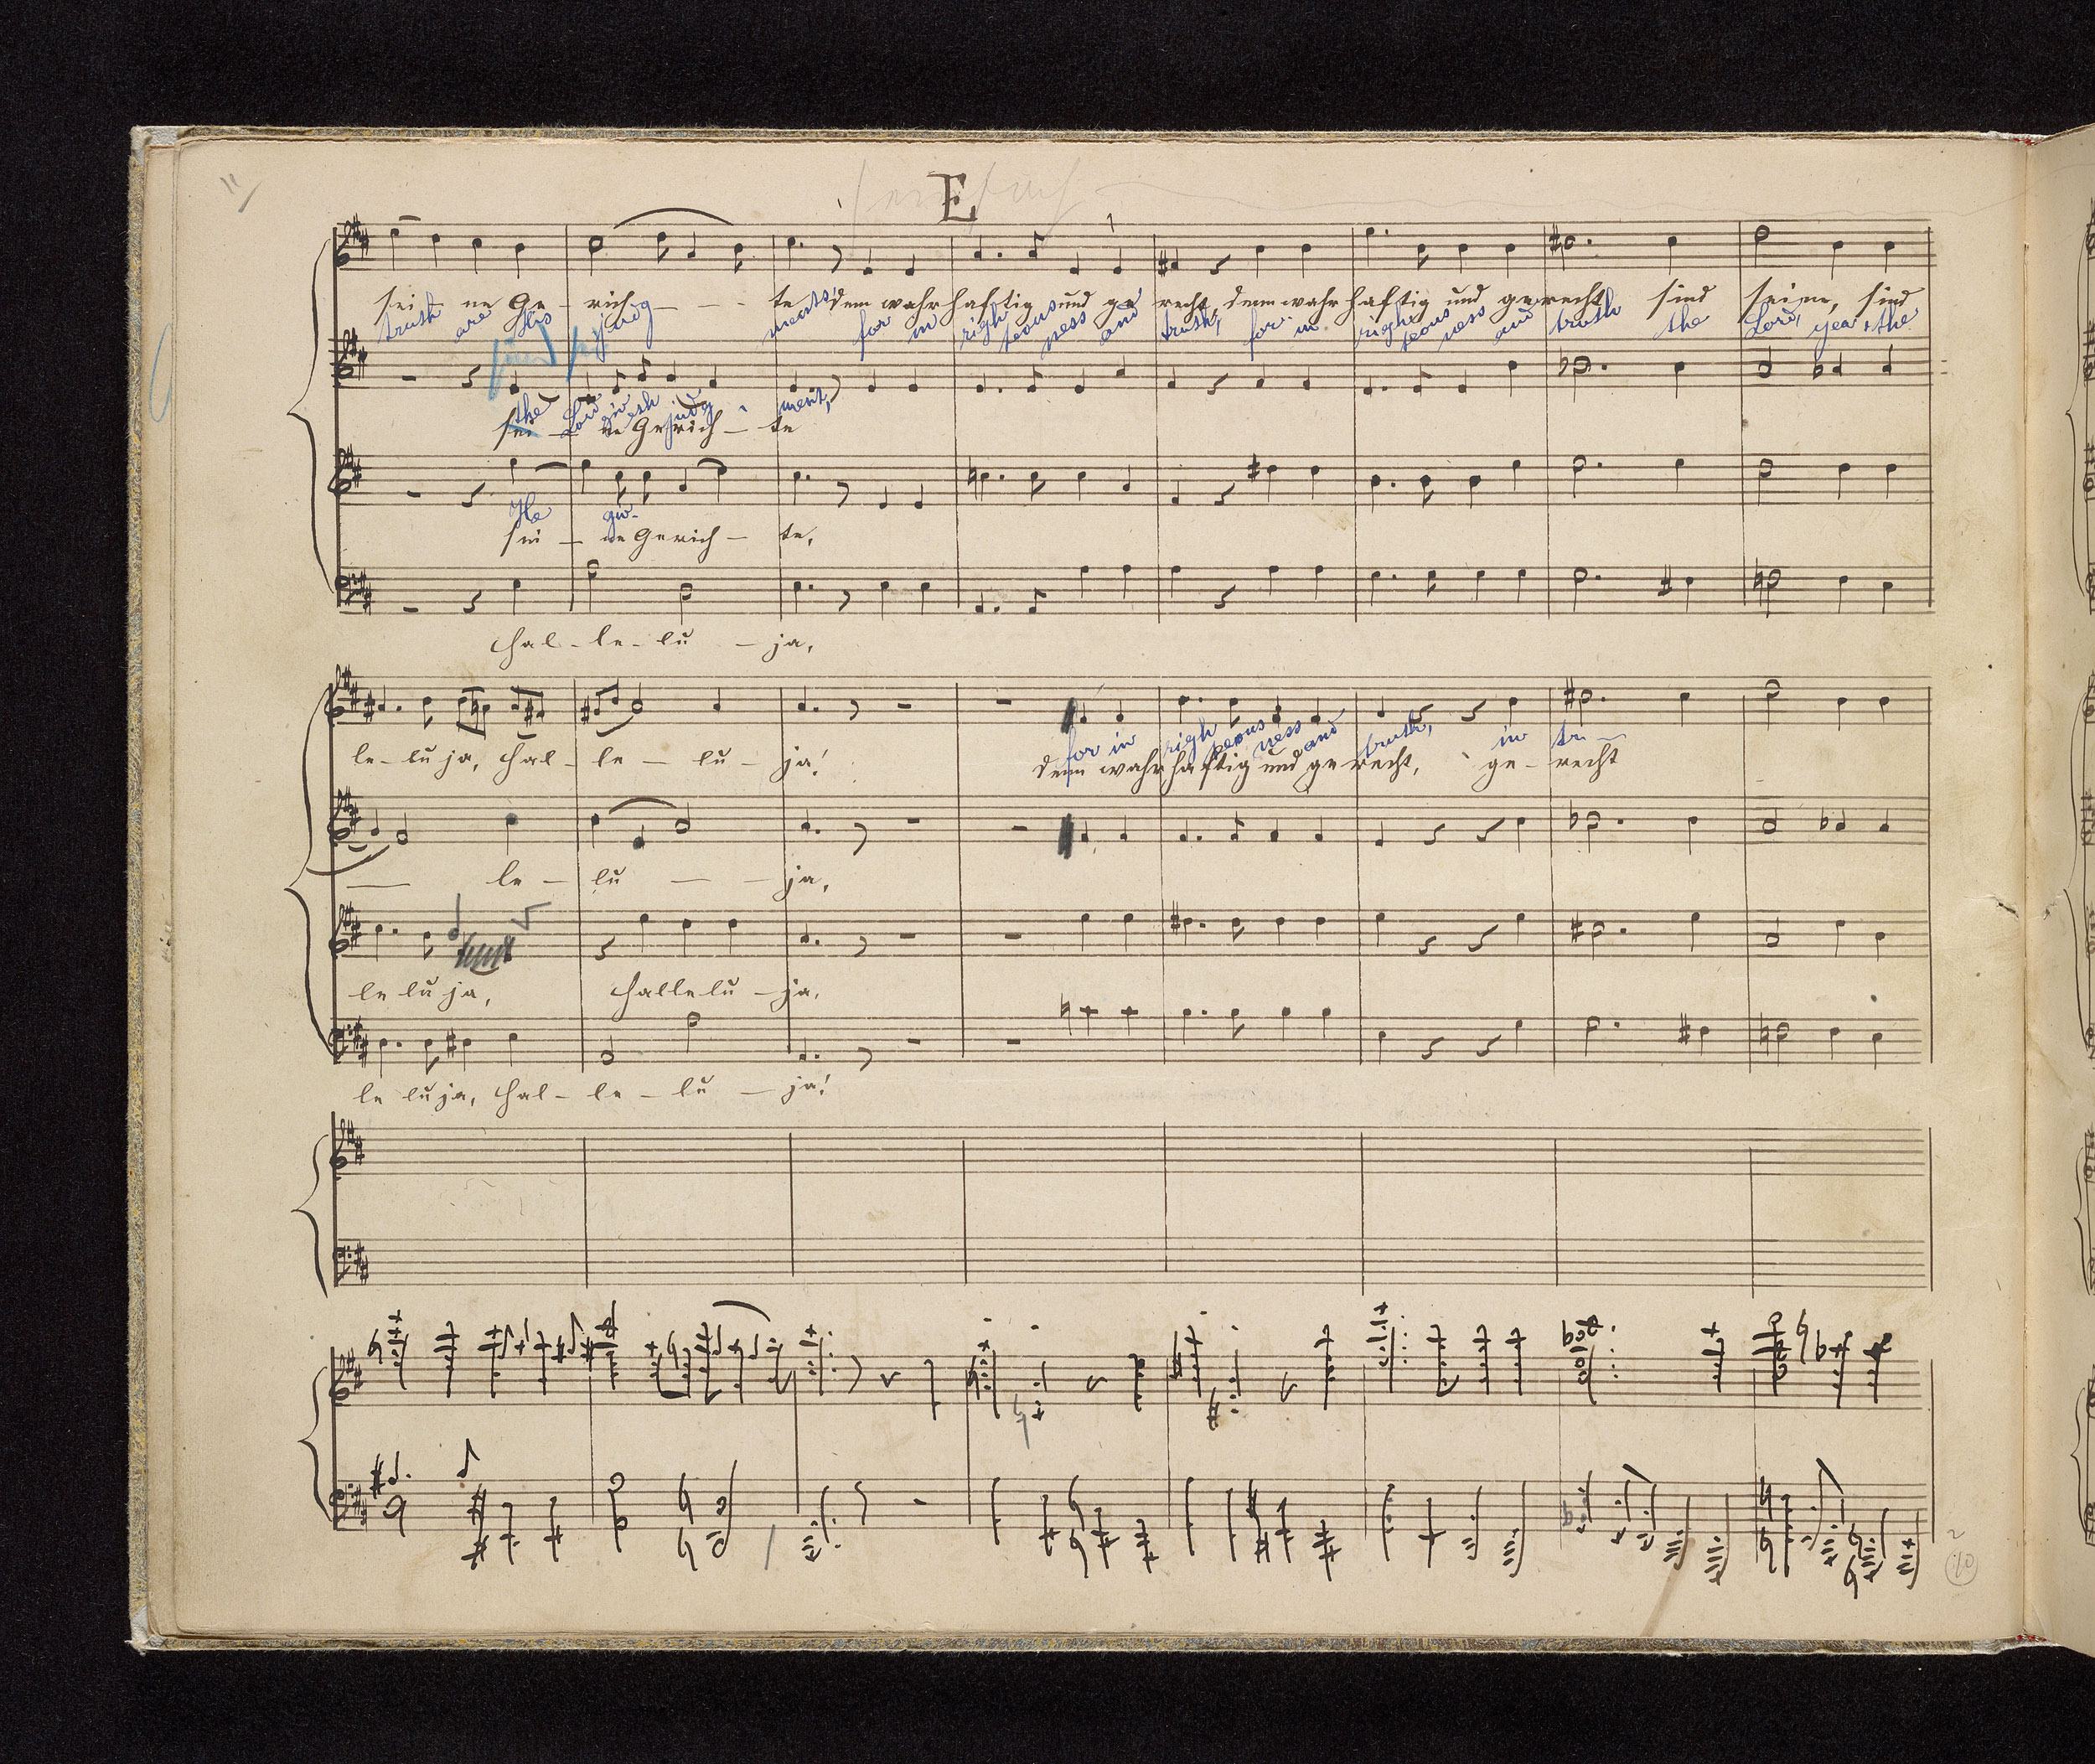 11
E
sei - ne Ge - rich - - - te denn wahrhaftig und ge recht, denn wahrhaftig und gerecht sind seine, sind
truth are His judg ments for in righ teous ness and truth, for in righ teous ness and truth the Lord, yea, the
the Lord in judg - ment,
sei - ne Gerich - te
He giv-
sei - ne Gerich - te,
Hal - le - lu - ja,
le - lu ja, Hal - le - lu - ja!
for in righ teous ness and truth, in tr -
denn wahrhaftig und gerecht, ge - recht
le - lu - ja,
le lu ja, Hallelu - ja,
le lu ja, Hal - le - lu - ja!
10